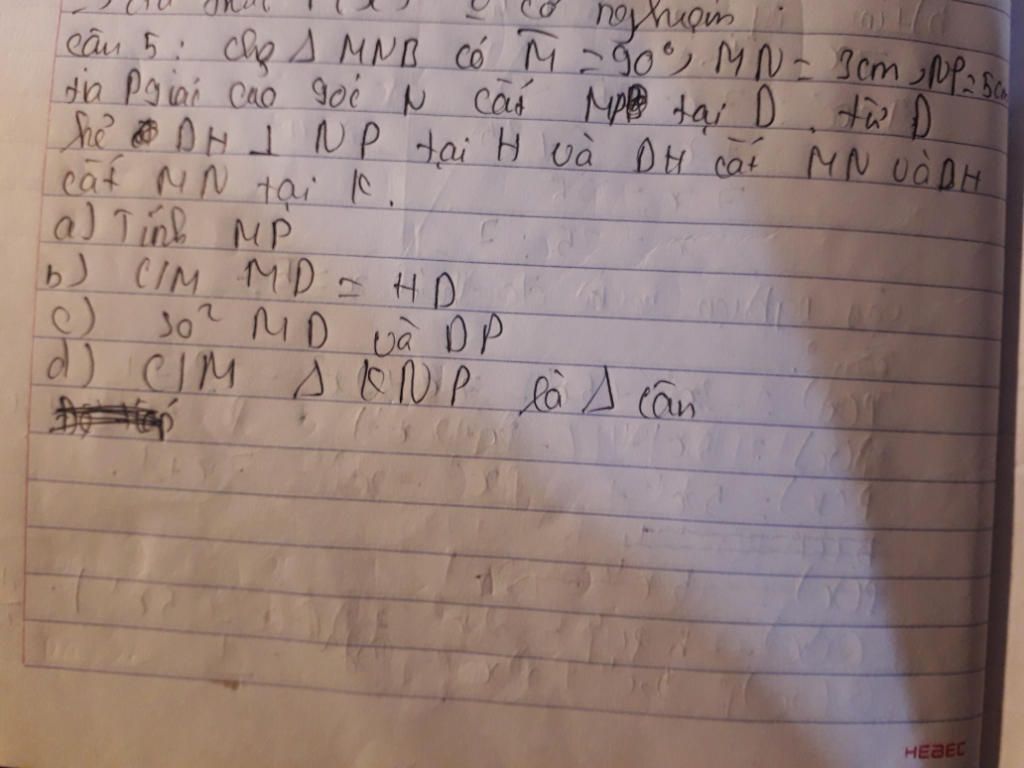 có nghiệm
câu 5: Chọ Δ MNB có M̂ = 90°, MN = 3cm, NP = 5cm
tia Pgiái cao góc N cắt MP tại D. từ D
kẻ DH ⊥ NP tại H và DH cắt MN và DH
cắt MN tại K.
a) Tính MP
b) C/M MD = HD
c) so² MD và DP
d) C/M Δ KNP là Δ cân
HEBEC